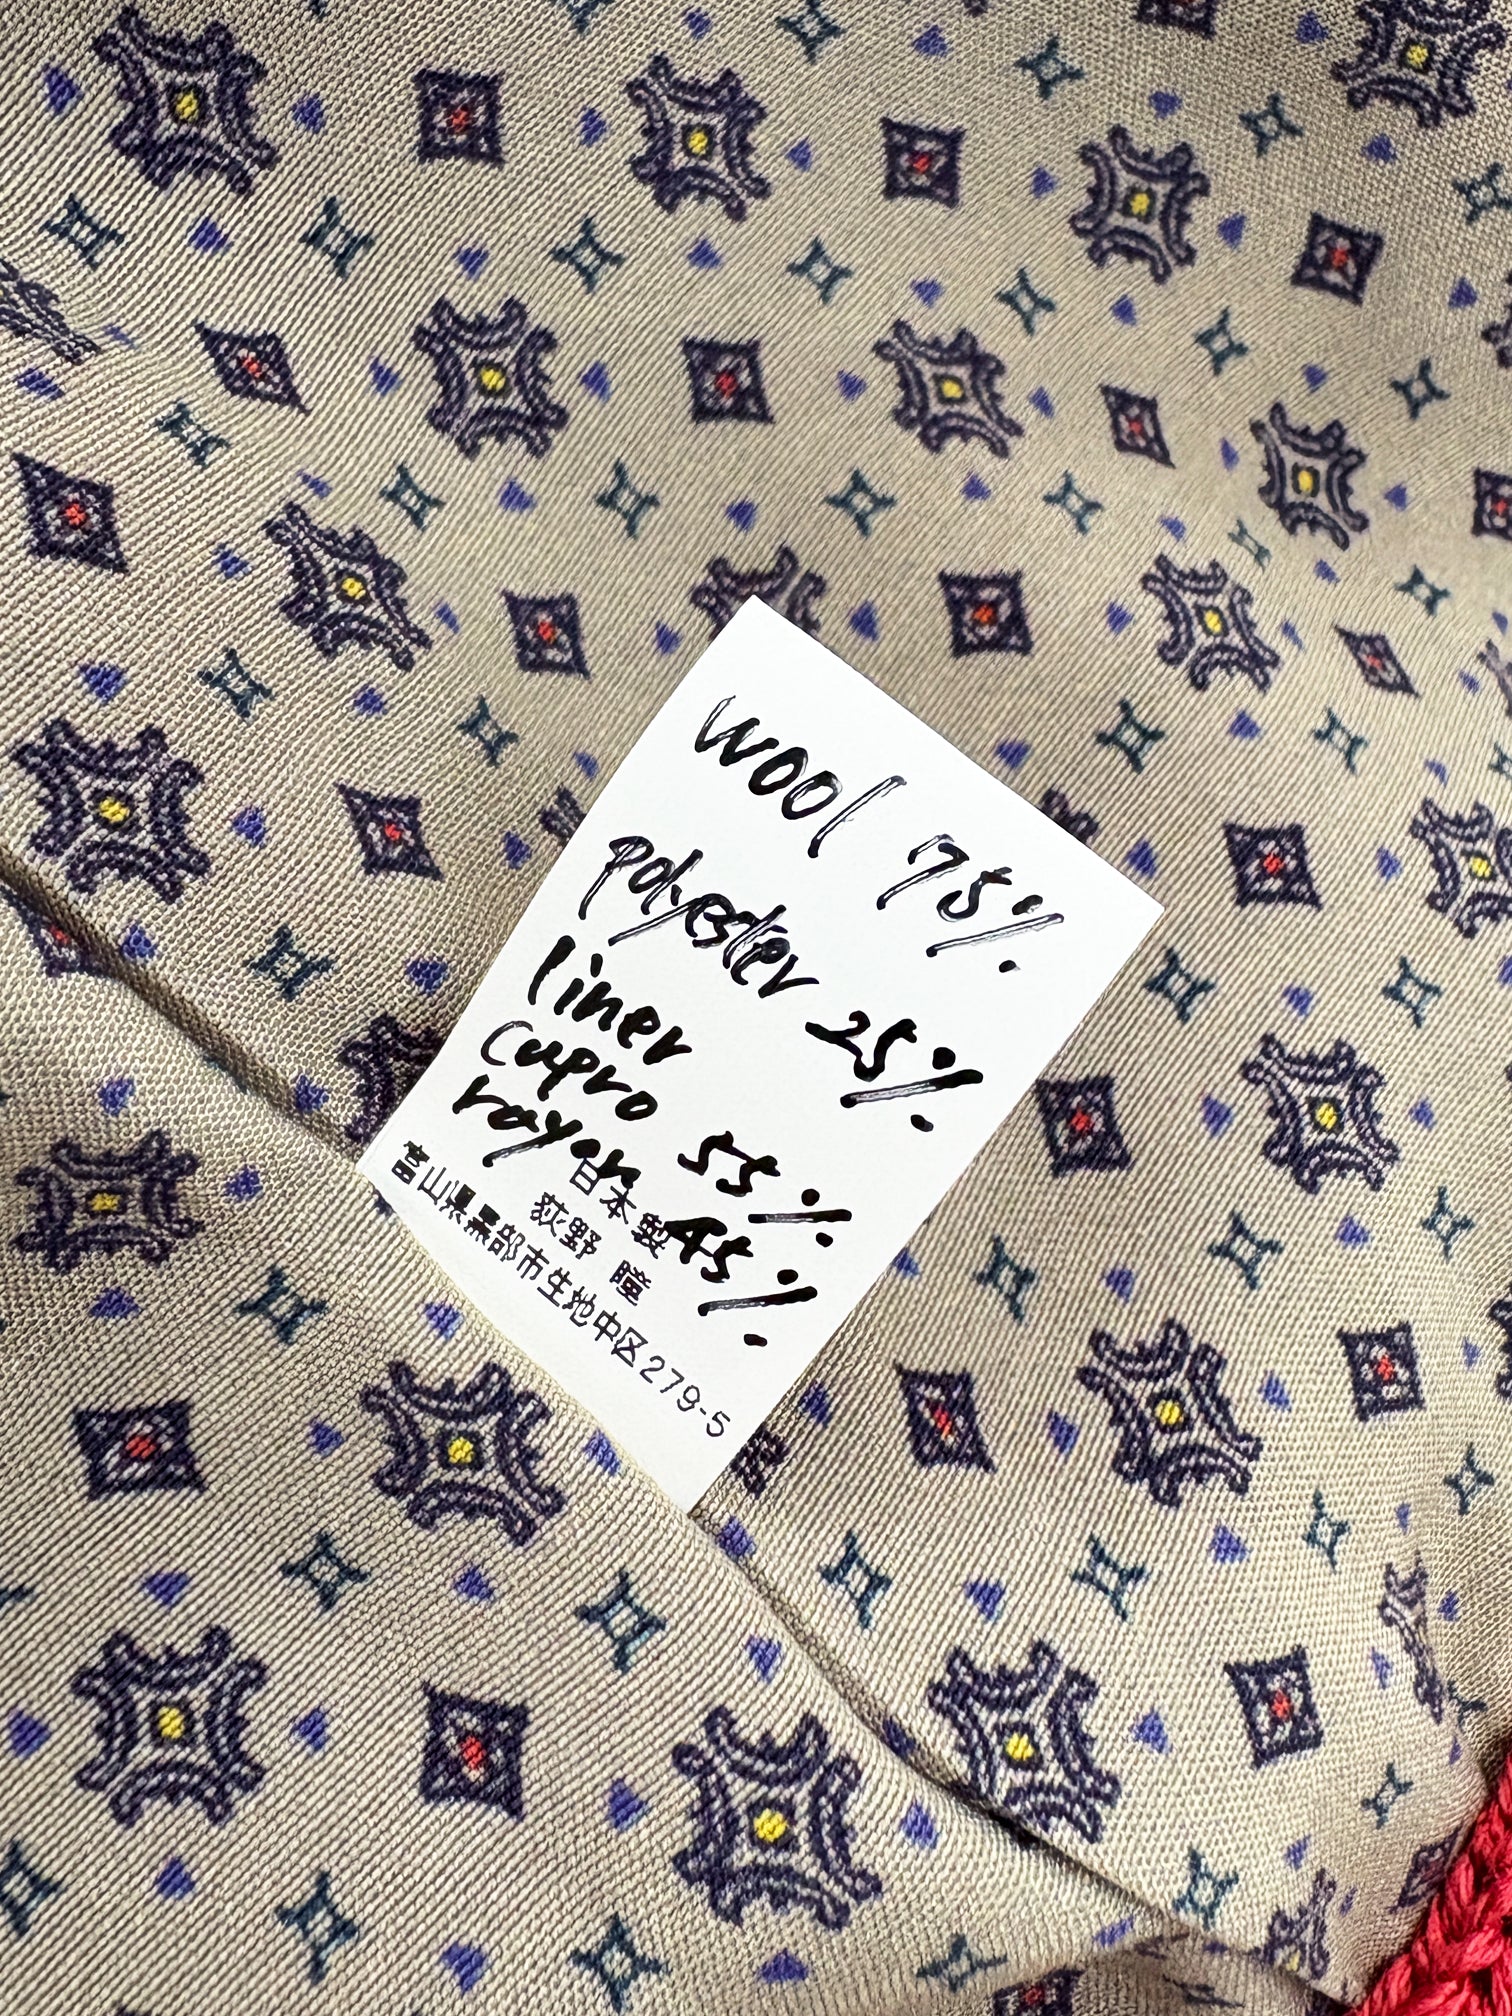 wool 75%
polyester 25%
liner
Cupro 55%
rayon 45%
日本製
荻野 瞳
富山県黒部市生地中区279-5